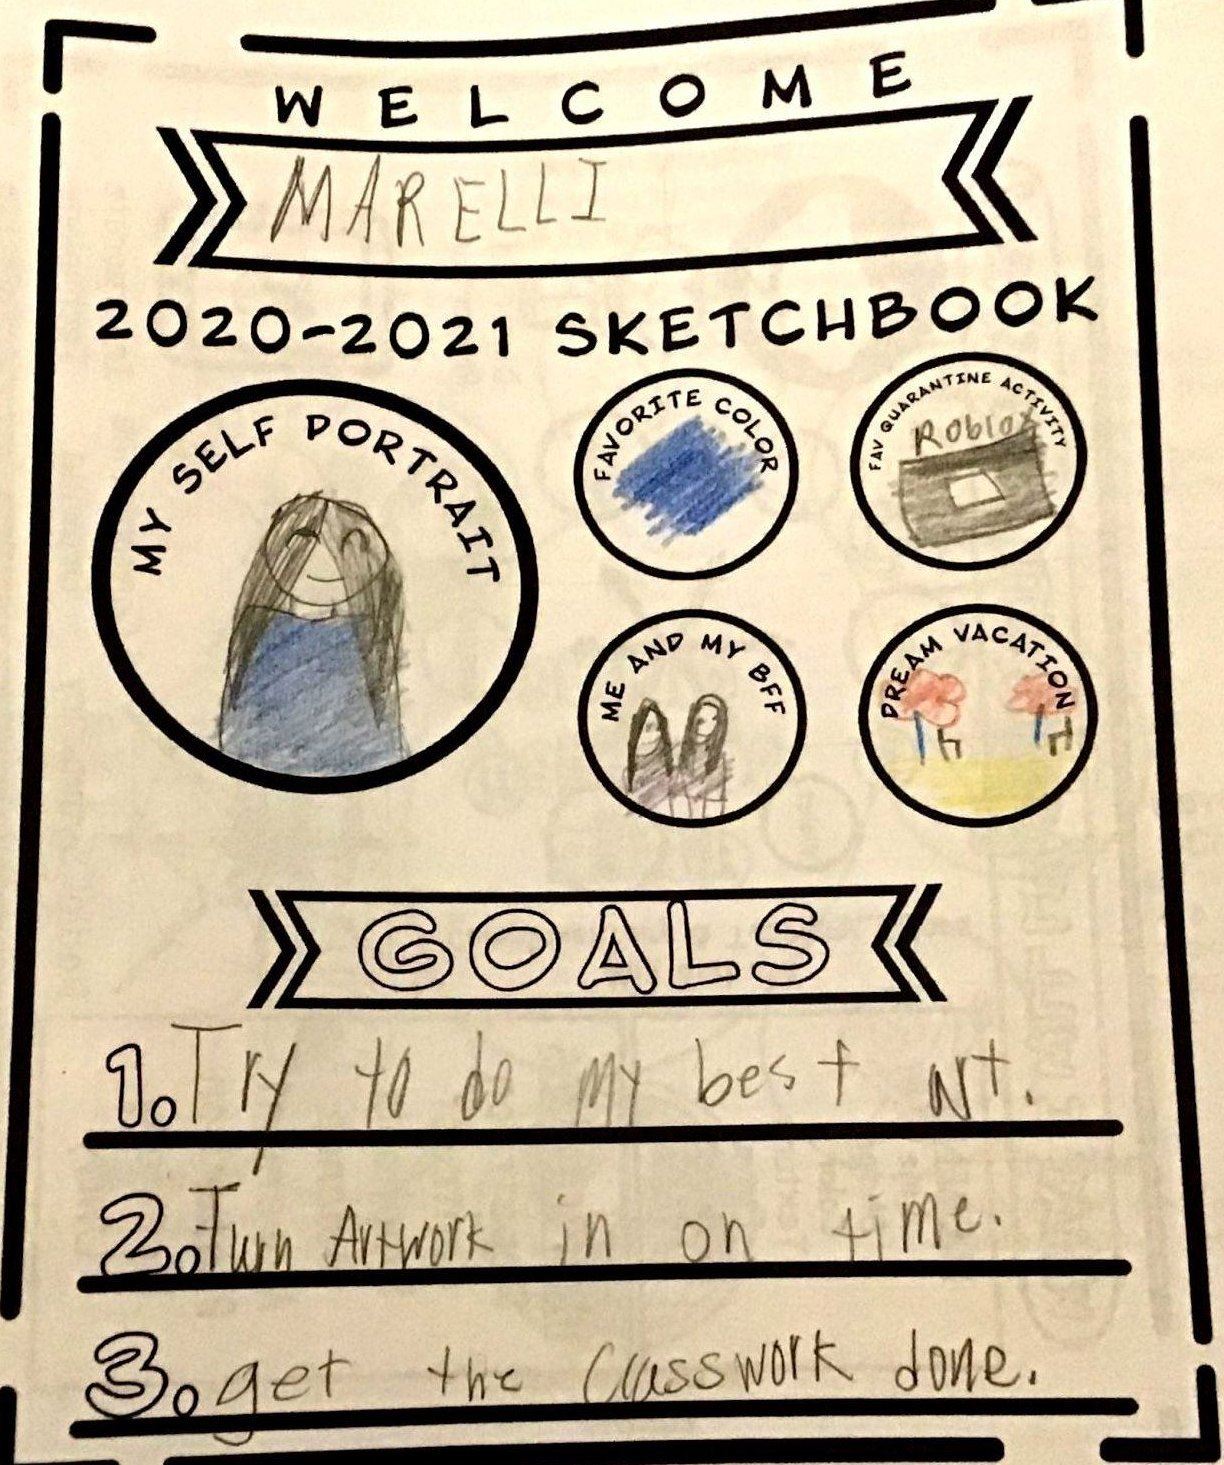 WELCOME
MARELLI
2020-2021 SKETCHBOOK
MY SELF PORTRAIT
FAVORITE COLOR
FAV QUARANTINE ACTIVITY
Roblox
ME AND MY BFF
DREAM VACATION
GOALS
1. Try to do my best art.
2. Turn Artwork in on time.
3. get the Classwork done.